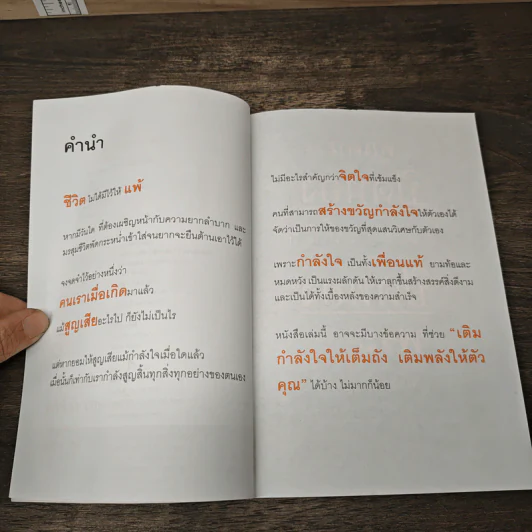 คำนำ
ชีวิต ไม่ได้มีไว้ให้ แพ้
หากมีวันใด ที่ต้องเผชิญหน้ากับความยากลำบาก และ
มรสุมชีวิตพัดกระหน่ำเข้าใส่จนยากจะยืนต้านเอาไว้ได้
จงจดจำไว้อย่างหนึ่งว่า
คนเราเมื่อเกิดมาแล้ว
แม้สูญเสียอะไรไป ก็ยังไม่เป็นไร
แต่หากยอมให้สูญเสียแม้กำลังใจเมื่อใดแล้ว
เมื่อนั้นก็เท่ากับเรากำลังสูญสิ้นทุกสิ่งทุกอย่างของตนเอง
ไม่มีอะไรสำคัญกว่าจิตใจที่เข้มแข็ง
คนที่สามารถสร้างขวัญกำลังใจให้ตัวเองได้
จัดว่าเป็นการให้ของขวัญที่สุดแสนวิเศษกับตัวเอง
เพราะกำลังใจ เป็นทั้งเพื่อนแท้ ยามท้อและ
หมดหวัง เป็นแรงผลักดัน ให้เราลุกขึ้นสร้างสรรค์สิ่งดีงาม
และเป็นได้ทั้งเบื้องหลังของความสำเร็จ
หนังสือเล่มนี้ อาจจะมีบางข้อความ ที่ช่วย "เติม
กำลังใจให้เต็มถัง เติมพลังให้ตัว
คุณ" ได้บ้าง ไม่มากก็น้อย